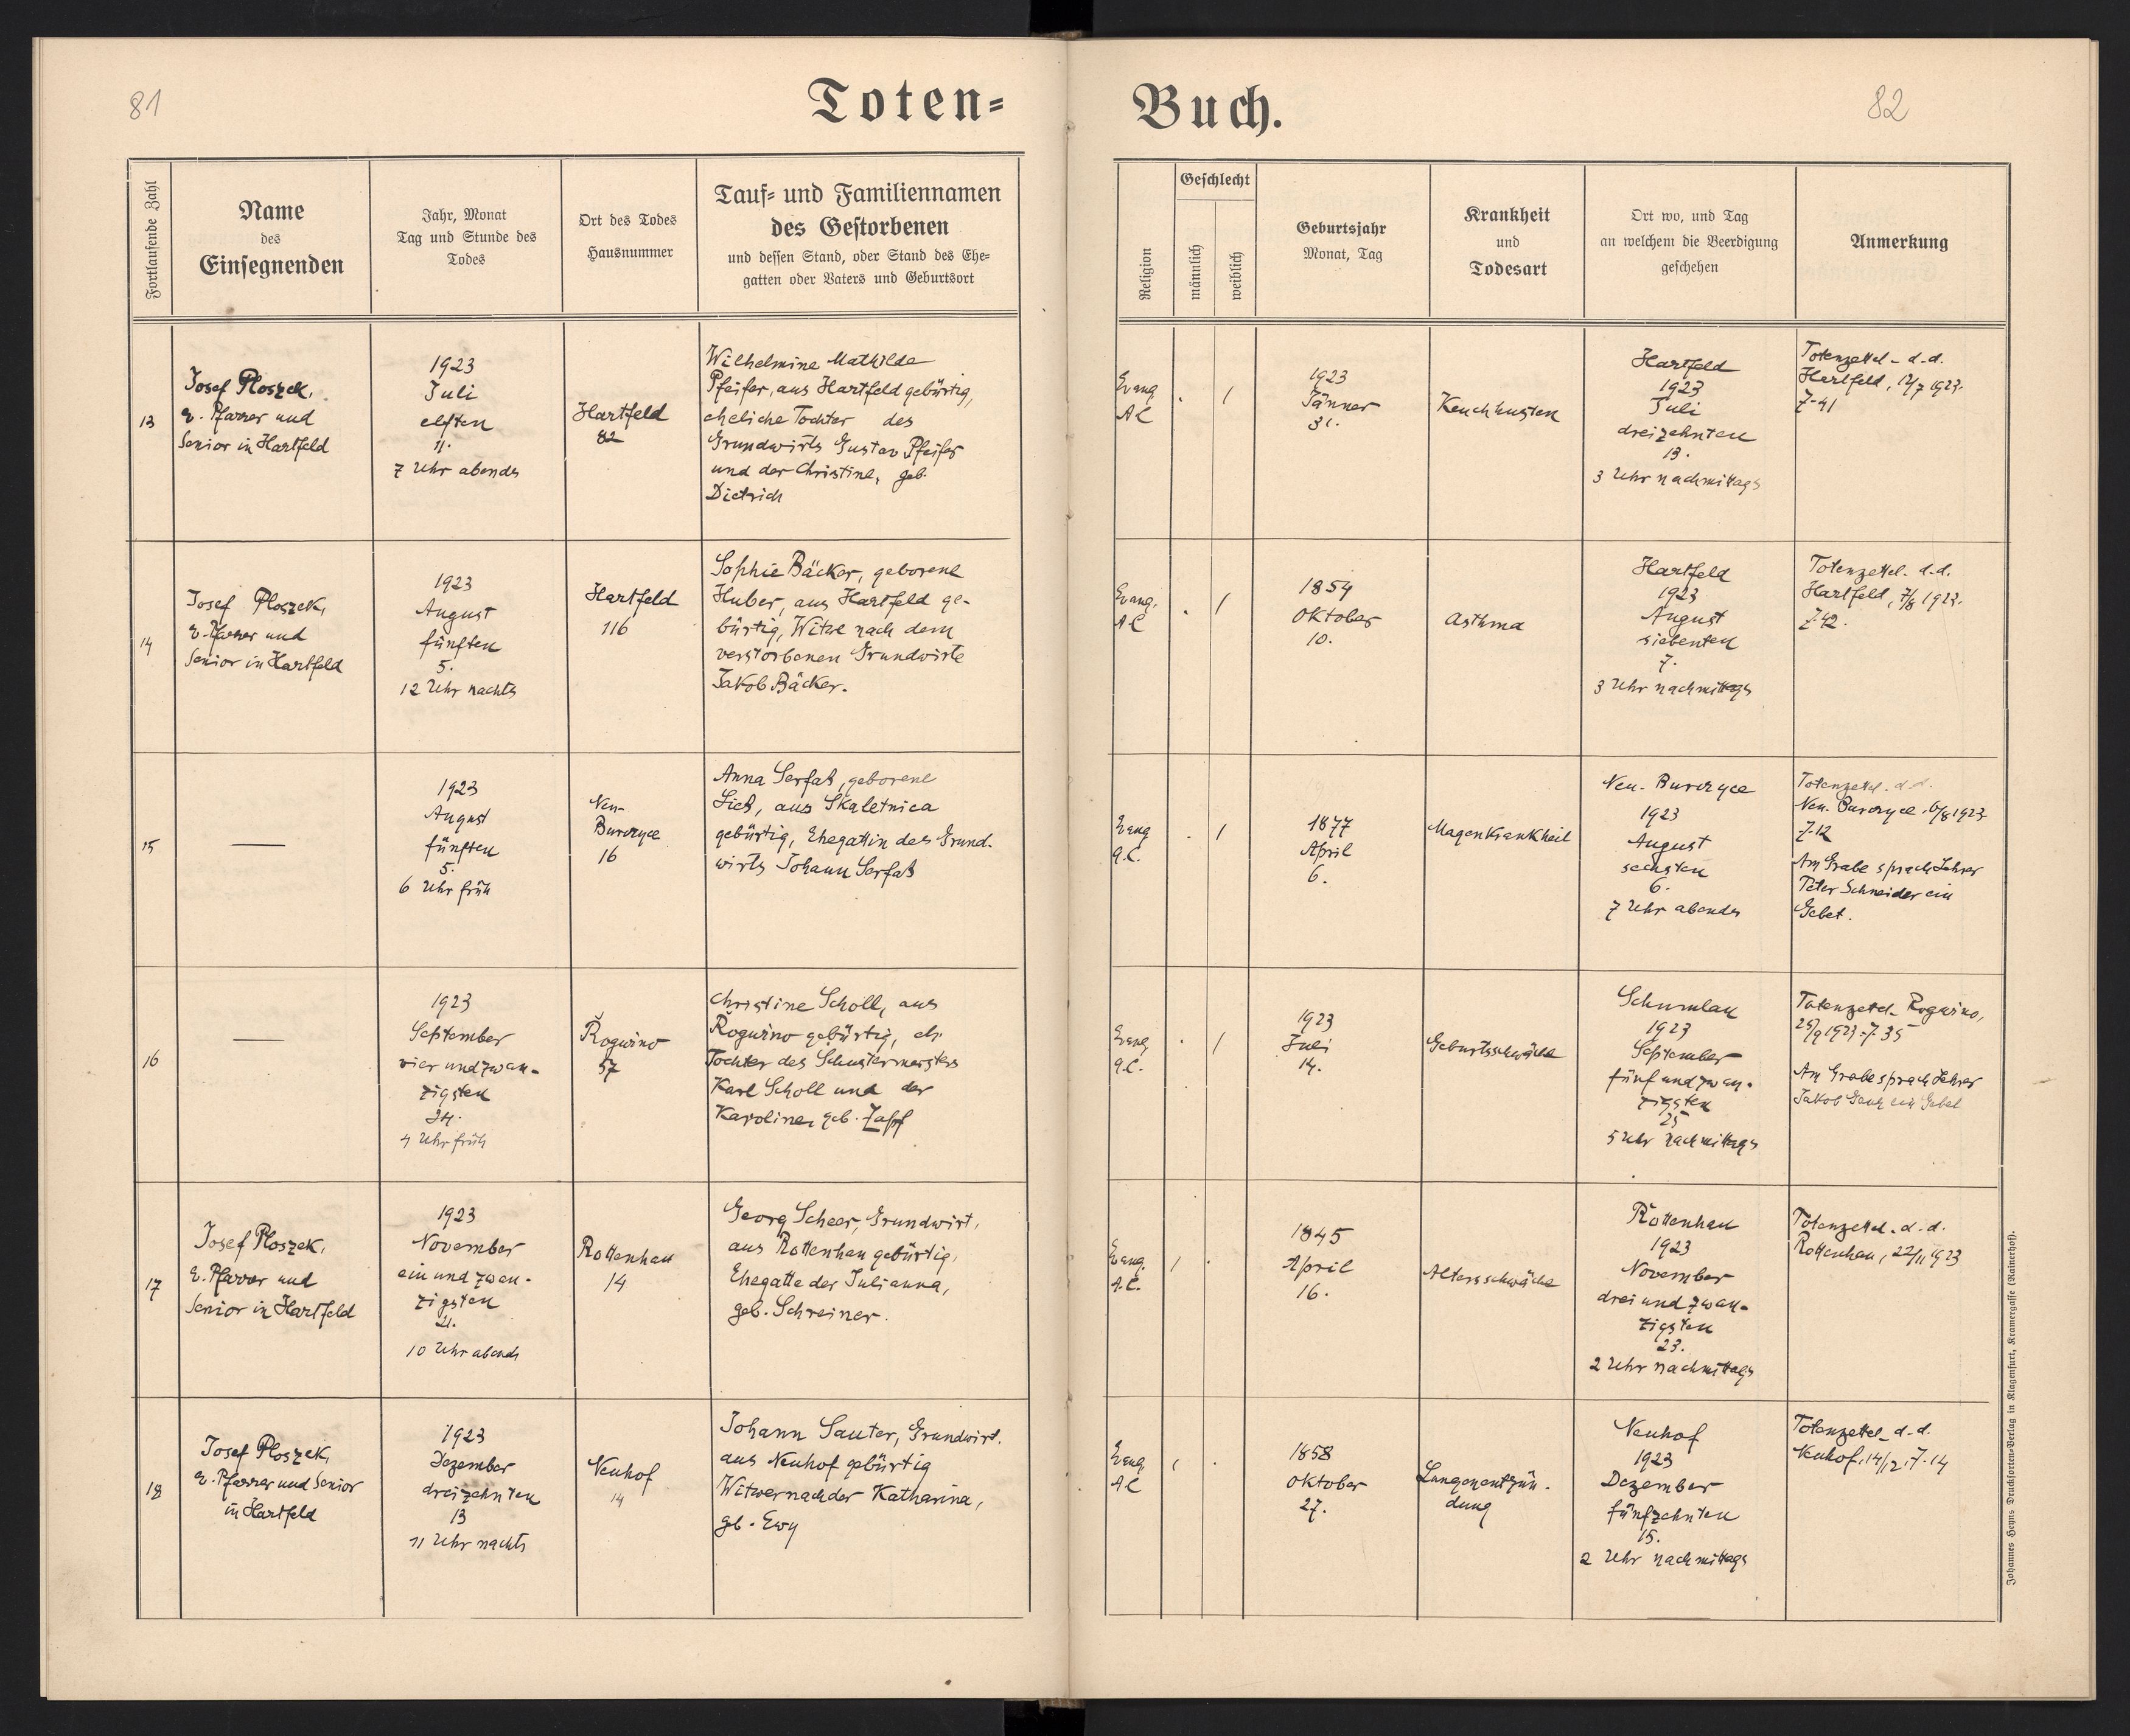 81
Toten=
Buch.
82
Fortlaufende Zahl
Name
des
Einsegnenden
Jahr, Monat
Tag und Stunde des
Todes
Ort des Todes
Hausnummer
Tauf= und Familiennamen
des Gestorbenen
und dessen Stand, oder Stand des Ehe=
gatten oder Vaters und Geburtsort
Religion
Geschlecht
männlich
weiblich
Geburtsjahr
Monat, Tag
Krankheit
und
Todesart
Ort wo, und Tag
an welchem die Beerdigung
geschehen
Anmerkung
13
Josef Ploszek,
e. Pfarrer und
Senior in Hartfeld
1923
Juli
elften
11.
7 Uhr abends
Hartfeld
82
Wilhelmine Mathilde
Pfeifer, aus Hartfeld gebürtig,
eheliche Tochter des
Grundwirts Gustav Pfeifer
und der Christine, geb.
Dietrich
Evang
AC
1923
Jänner
31.
Keuchhusten
Hartfeld
1923
Juli
dreizehnten
13.
3 Uhr nachmittags
Totenzettel - d.d.
Hartfeld, 12/7 1923.
Z-41
14
Josef Ploszek,
e. Pfarrer und
Senior in Hartfeld
1923
August
fünften
5.
12 Uhr nachts
Hartfeld
116
Sophie Bäcker, geborene
Huber, aus Hartfeld ge-
bürtig, Witwe nach dem
verstorbenen Grundwirte
Jakob Bäcker.
Evang.
AC
1854
Oktober
10.
Asthma
Hartfeld
1923
August
siebenten
7.
3 Uhr nachmittags
Totenzettel. d.d.
Hartfeld, 7/8 1923.
Z-42.
15
1923
August
fünften
5.
6 Uhr früh
Neu-
Burczyce
16
Anna Serfas, geborene
aus Skaletnica
gebürtig, Ehegattin des Grund-
wirts Johann Serfas
Evang
A.C.
1877
April
6.
Magenkrankheit
Neu-Burczyce
1923
August
sechsten
6.
7 Uhr abends
Totenzettel. d.d.
Neu-Burczyce, 6/8 1923
Z-12
Am Grabe sprach Lehrer
Peter Schneider ein
Gebet.
16
1923
September
vierundzwan-
zigsten
24.
4 Uhr früh
Roguźno
57
Christine Scholl, aus
Roguźno gebürtig, ehl.
Tochter des Schustermeisters
Karl Scholl und der
Karoline, geb. Zapf
Evang
A.C.
1923
Juli
14.
Geburtsschwäche
Schumlau
1923
September
fünfundzwan-
zigsten
25
5 Uhr nachmittags
Totenzettel - Roguźno,
25/9 1923 - Z 35
Am Grabe sprach Lehrer
Jakob ein Gebet
17
Josef Ploszek,
e. Pfarrer und
Senior in Hartfeld
1923
November
einundzwan-
zigsten
21.
10 Uhr abends
Rottenhan
14
Georg Scheer, Grundwirt,
aus Rottenhan gebürtig,
Ehegatte der Julianna,
geb. Schreiner.
Evang.
A.C.
1845
April
16.
Altersschwäche
Rottenhan
1923
November
dreiundzwan-
zigsten
23.
2 Uhr nachmittags
Totenzettel. d.d.
Rottenhan, 22/11 1923
18
Josef Ploszek,
e. Pfarrer und Senior
in Hartfeld
1923
Dezember
dreizehnten
13
11 Uhr nachts
Neuhof
14
Johann Sauter, Grundwirt.
aus Neuhof gebürtig
Witwer nach der Katharina,
geb. Ewy
Evang
AC
1858
Oktober
27.
Lungenentzün-
dung
Neuhof
1923
Dezember
fünfzehnten
15.
2 Uhr nachmittags
Totenzettel - d.d.
Neuhof, 14/12, Z-14
Johannes Heyns Drucksorten=Verlag in Klagenfurt, Kramergasse (Rainerhof).